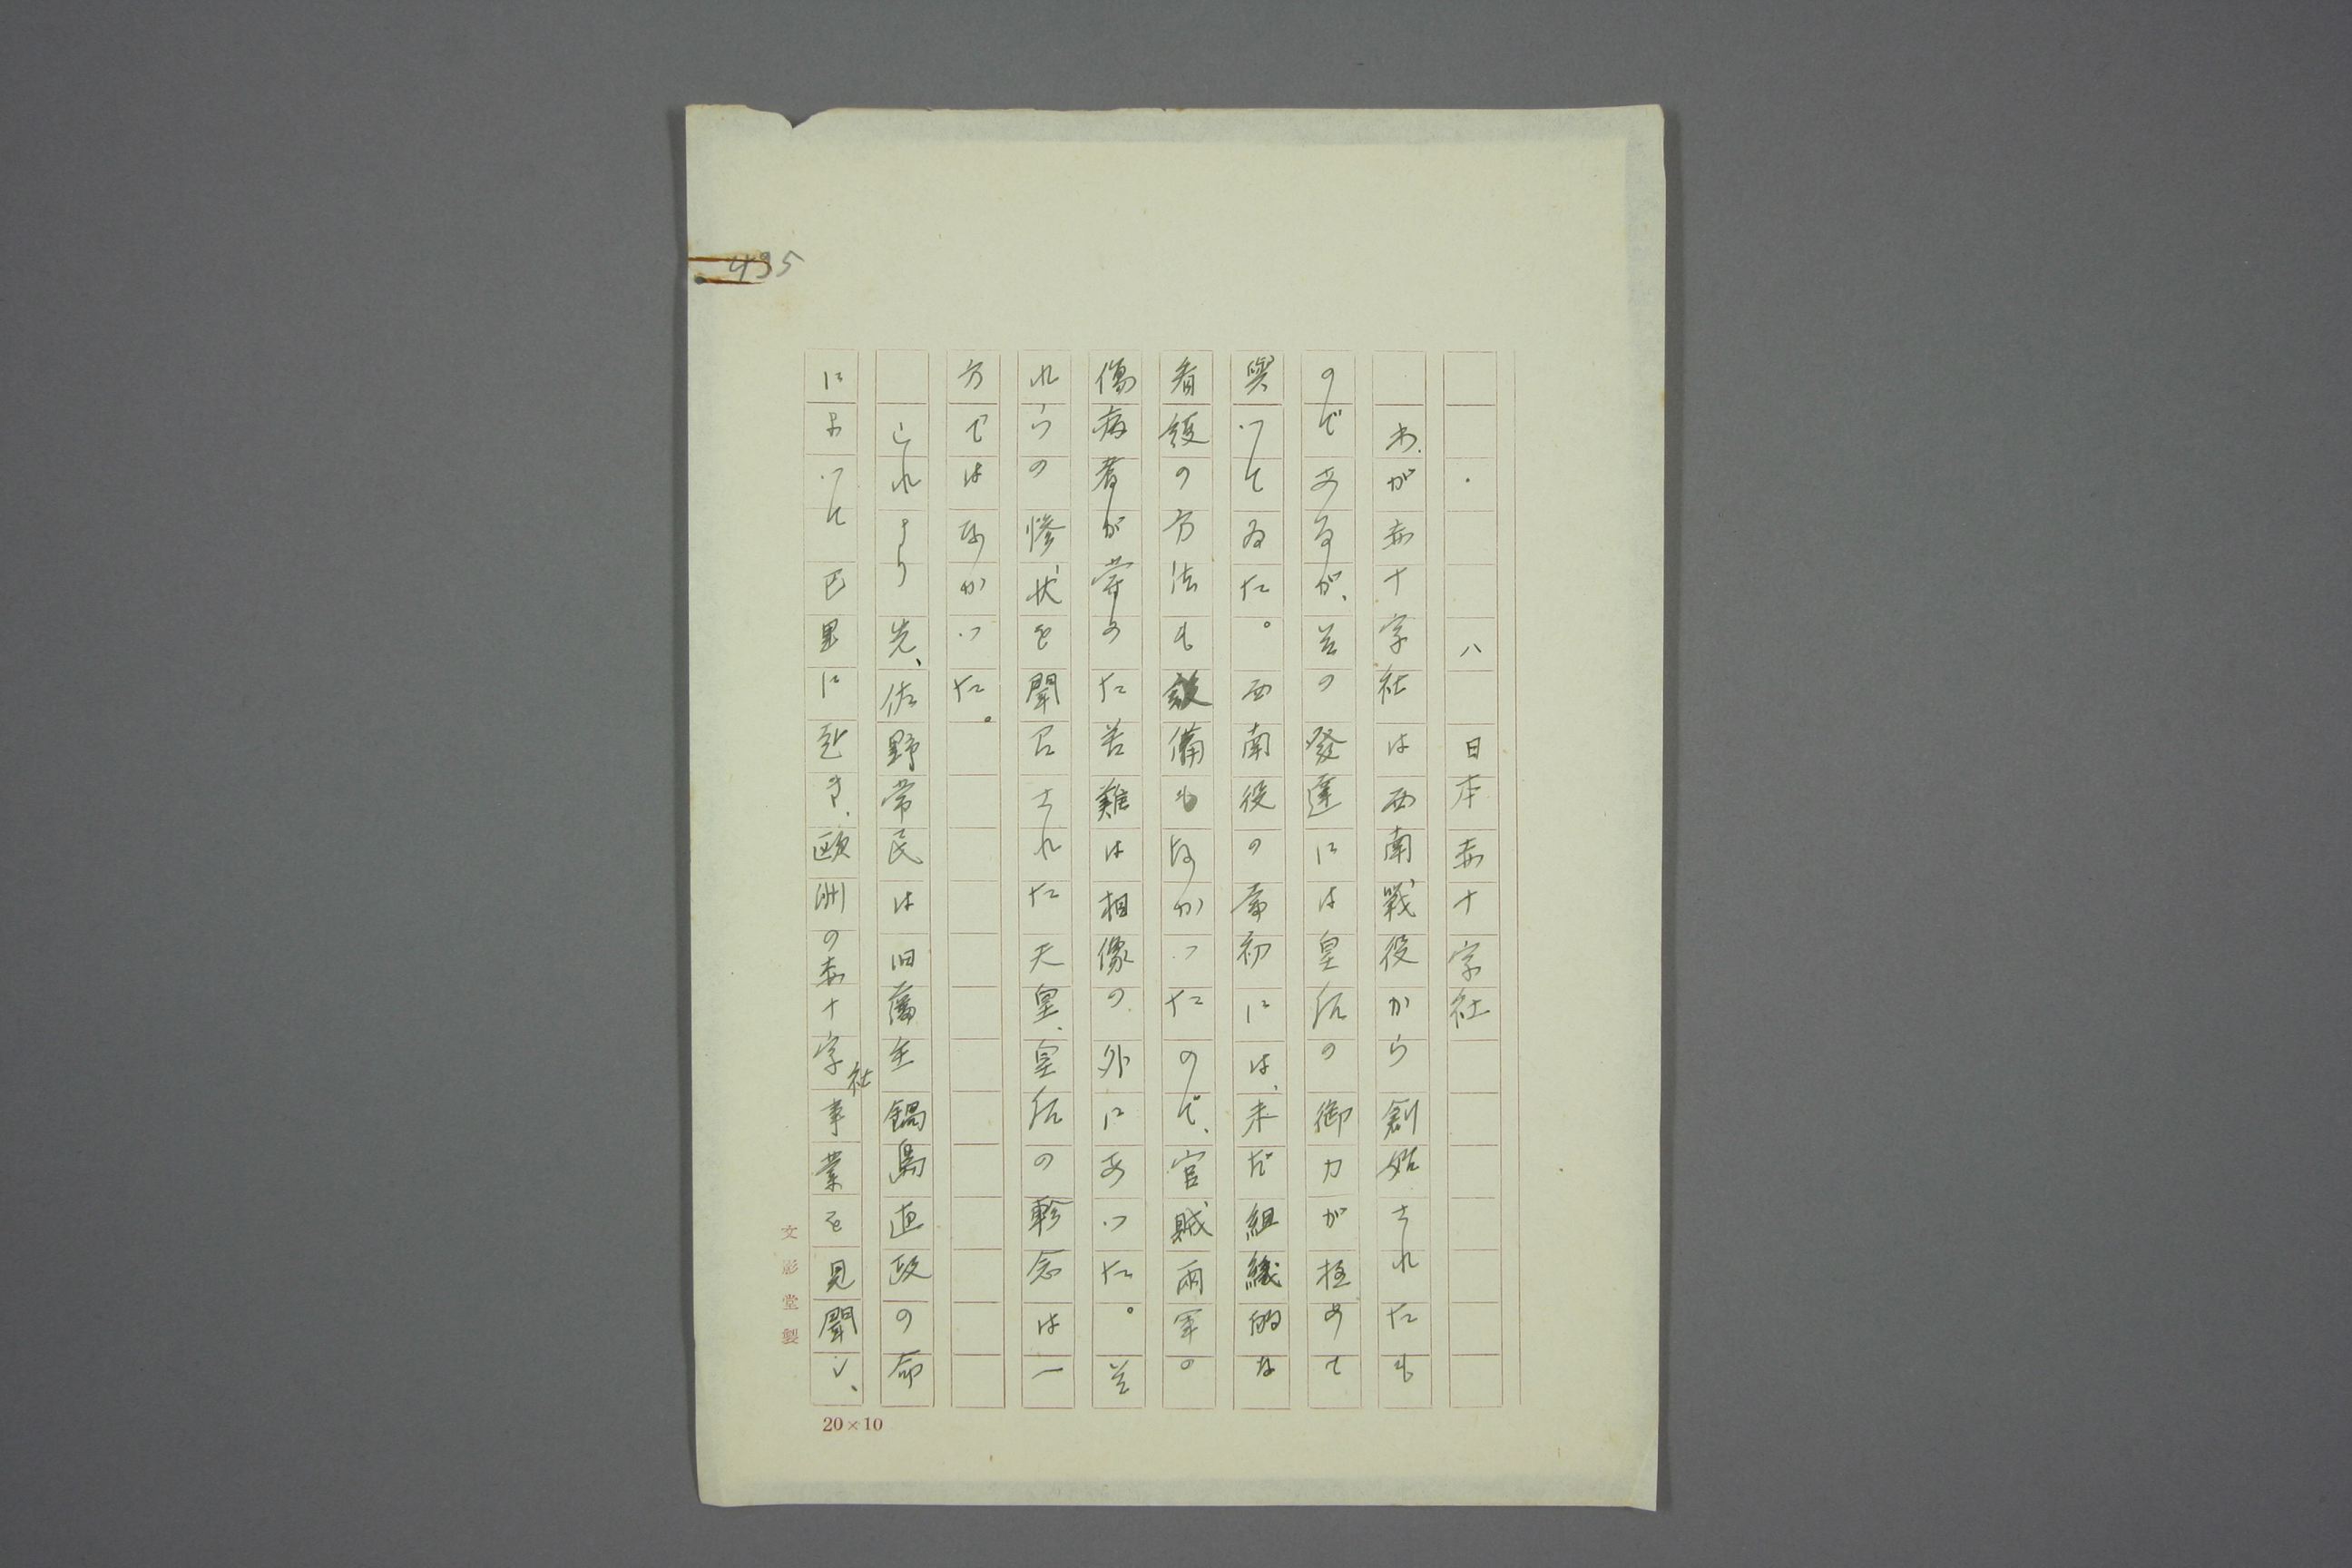 435
八 日本赤十字社
わが赤十字社は西南戰役から創始されたも
のであるが、その發達には皇后の御力が極めて
與つてゐた。西南役の當初には、未だ組織的な
看護の方法も設備もなかつたので、官賊兩軍の
傷病者が嘗めた苦難は相像の外にあつた。そ
れらの慘状を聞召された天皇、皇后の軫念は一
方ではなかつた。
これより先、佐野常民は旧藩主鍋島直政の命
によつて巴里に赴き、歐洲の赤十字社事業を見聞し、
文影堂製
20×10